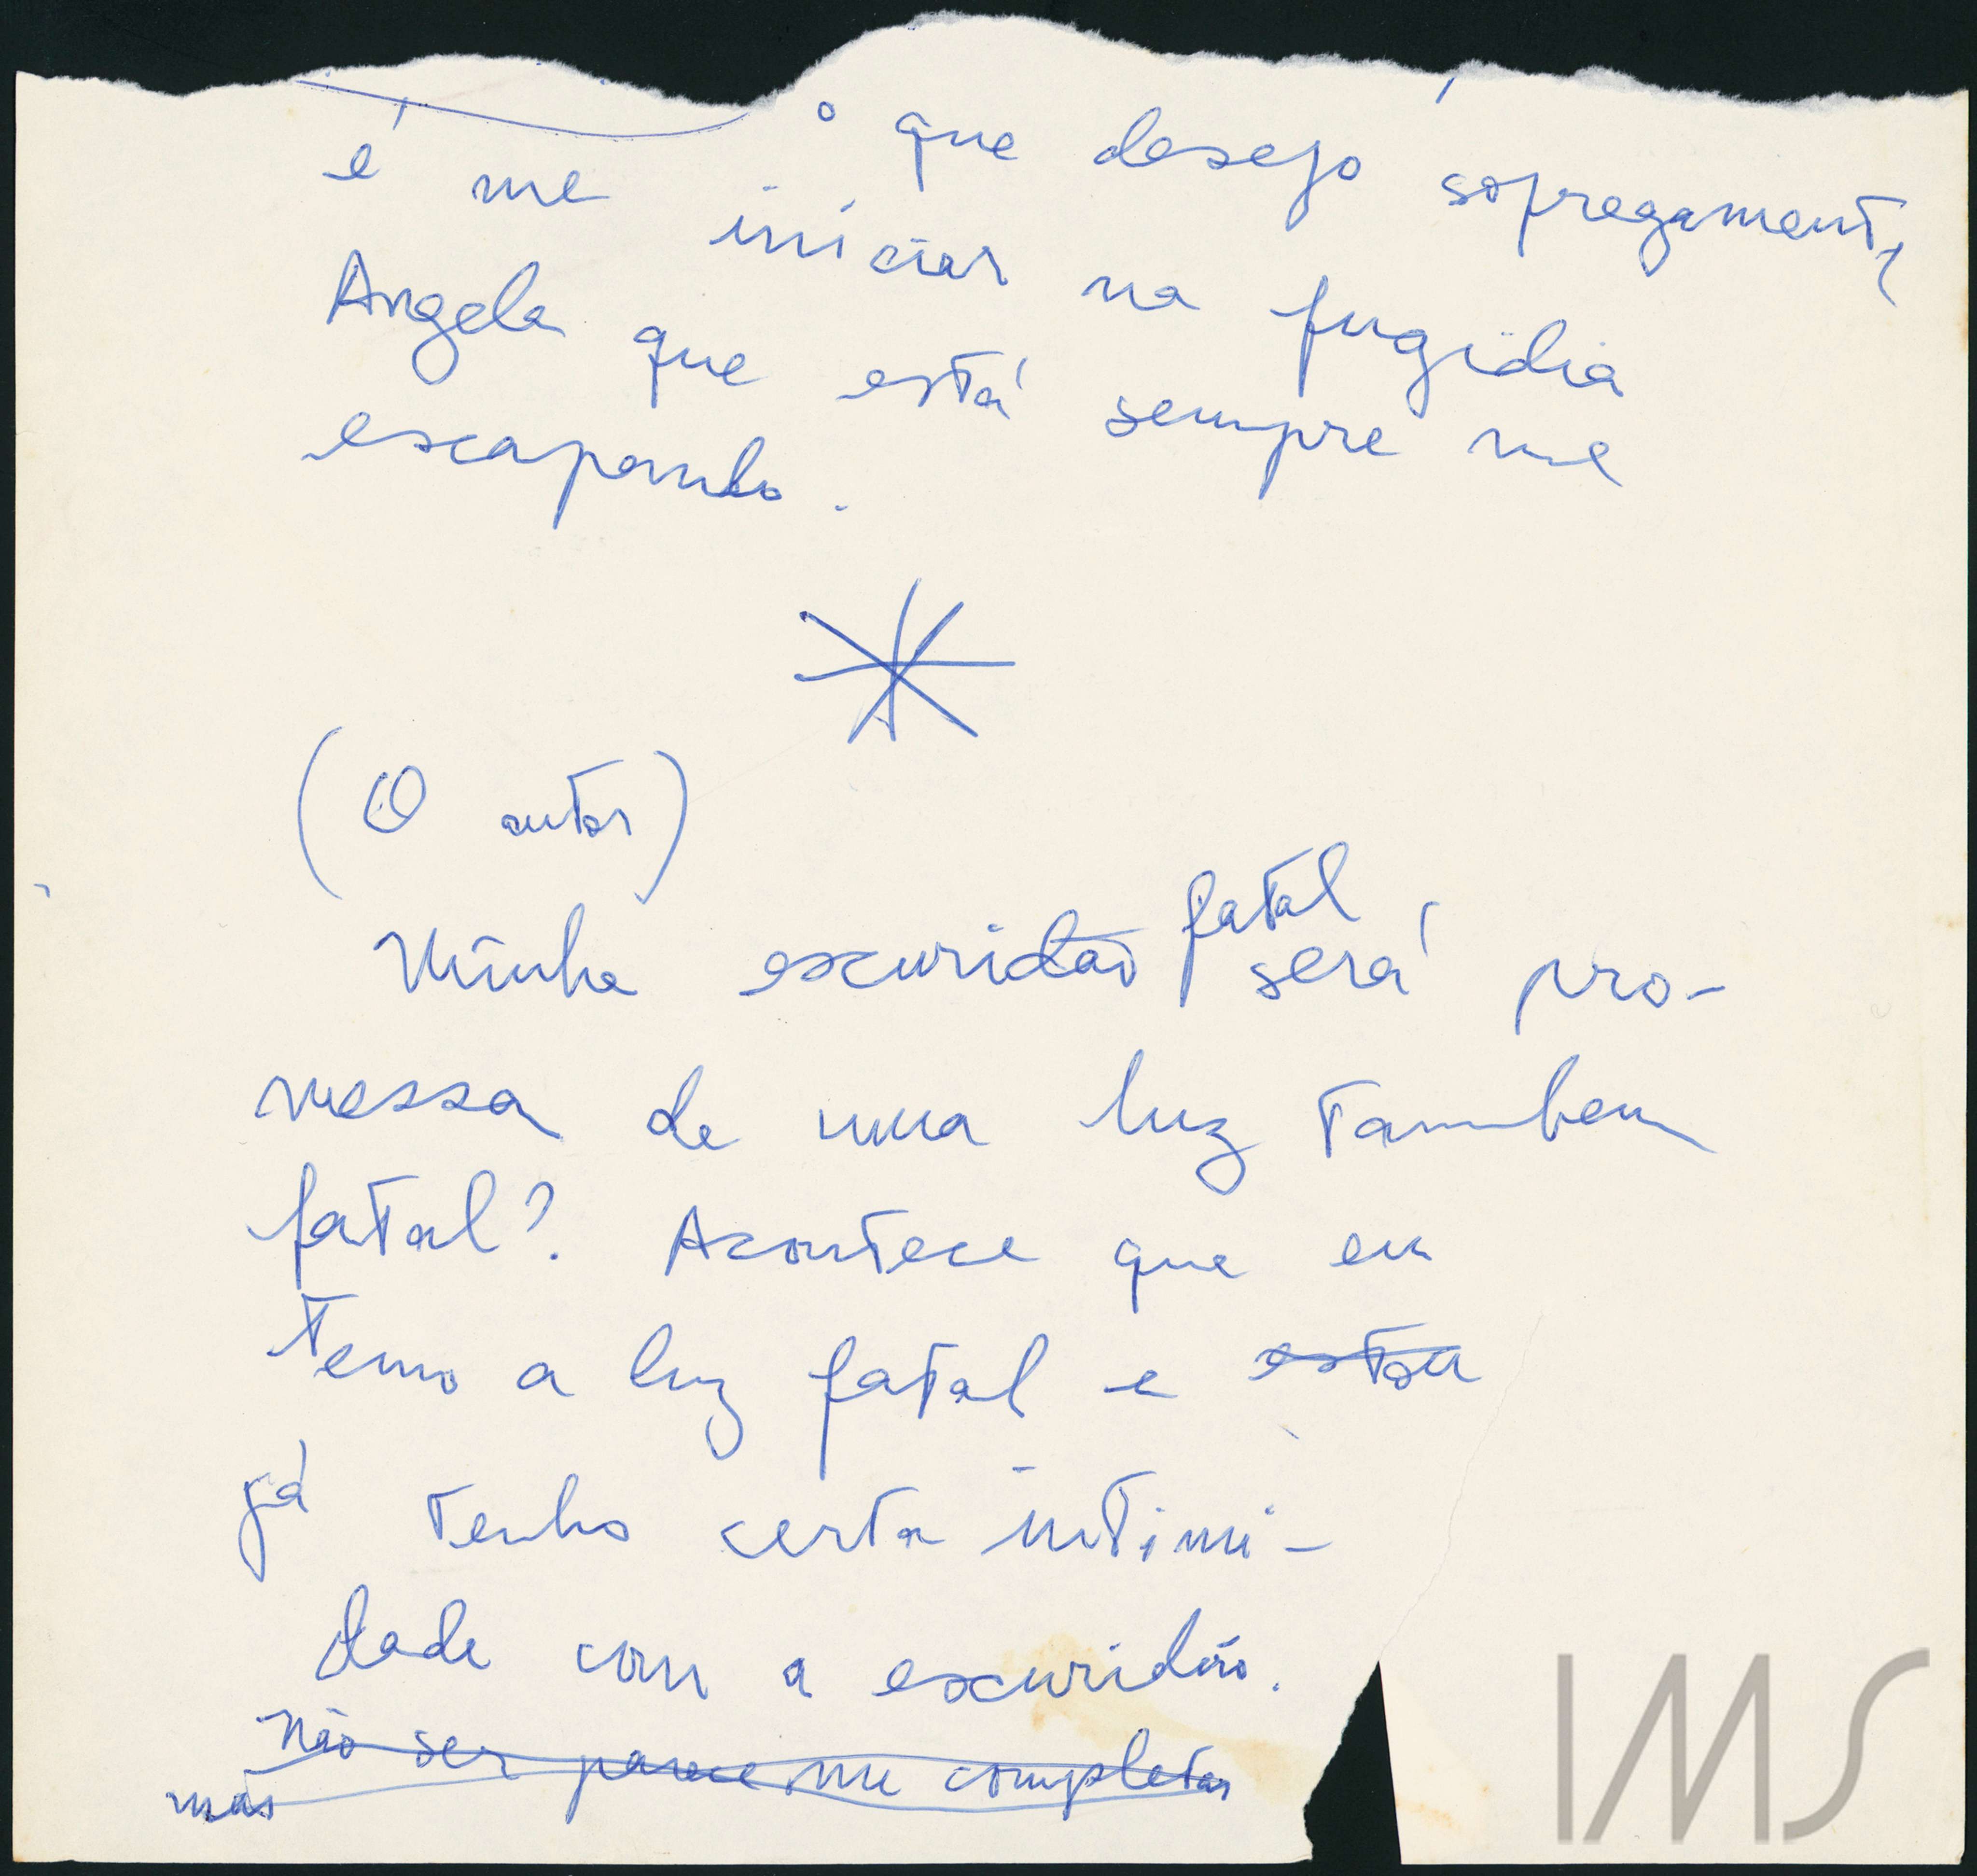 o que desejo sofregamente
é me iniciar na fugidia
Angela que está sempre me
escapando.
(O autor)
fatal
Minha escuridão será pro-
messa de uma luz tambem
fatal? Acontece que eu
temo a luz fatal e estou
já tenho certa intimi-
dade com a escuridão.
Não ser parece me completar
mas
IMS